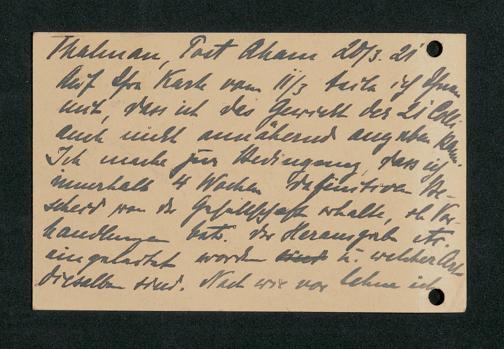 Thalmann, Post Aham 20/3. 21
Auf Ihre Karte vom 11/3 teile ich Ihnen
mit, dass ich das Gewicht der 21 Colli
auch nicht annähernd angeben kann.
Ich mache zur Bedingung, dass ich
innerhalb 4 Wochen definitiven Be-
scheid von der Gesellschaft erhalte, ob Ver-
handlungen betr. der Herausgabe etc.
eingeleitet worden u. welcher Art
dieselben sind. Nach wie vor lehne ich